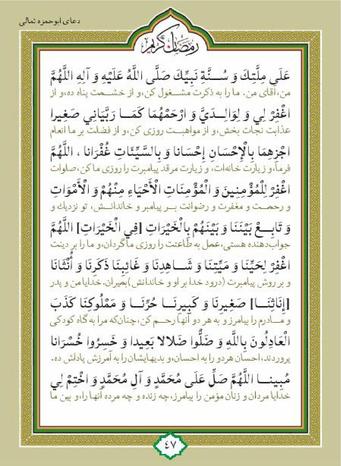 دعای ابوحمزه ثمالی
رمضان کریم
عَلَى مِلَّتِكَ وَ سُنَّةِ نَبِيِّكَ صَلَّى اللَّهُ عَلَيْهِ وَ آلِهِ اللَّهُمَّ
من، آقای من. ما را به ذکرت مشغول کن، و از خشمت پناه ده، و از
اغْفِرْ لِي وَ لِوَالِدَيَّ وَ ارْحَمْهُمَا كَمَا رَبَّيَانِي صَغِيرا
عذابت نجات بخش، و از مواهبت روزی کن، و از فضلت بر ما انعام
اجْزِهِمَا بِالْإِحْسَانِ إِحْسَانا وَ بِالسَّيِّئَاتِ غُفْرَانا ، اللَّهُمَّ
فرما، و زیارت خانه‌ات، و زیارت مرقد پیامبرت را روزی ما کن، صلوات
اغْفِرْ لِلْمُؤْمِنِينَ وَ الْمُؤْمِنَاتِ الْأَحْيَاءِ مِنْهُمْ وَ الْأَمْوَاتِ
و رحمت و مغفرت و رضوانت بر پیامبر و خاندانش، تو نزدیک و
وَ تَابِعْ بَيْنَنَا وَ بَيْنَهُمْ بِالْخَيْرَاتِ [فِي الْخَيْرَاتِ] اللَّهُمَّ
جواب‌دهنده هستی، عمل به طاعتت را روزی ما گردان، و ما را بر دینت
اغْفِرْ لِحَيِّنَا وَ مَيِّتِنَا وَ شَاهِدِنَا وَ غَائِبِنَا ذَكَرِنَا وَ أُنْثَانَا
و بر روش پیامبرت (درود خدا بر او و خاندانش) بمیران. خدایا من و پدر
[إِنَاثِنَا] صَغِيرِنَا وَ كَبِيرِنَا حُرِّنَا وَ مَمْلُوكِنَا كَذَبَ
و مادرم را بیامرز و به هر دو آنها رحم کن، چنان‌که مرا به گاه کودکی
الْعَادِلُونَ بِاللَّهِ وَ ضَلُّوا ضَلالا بَعِيدا وَ خَسِرُوا خُسْرَانا
پروردند، احسان هر دو را به احسان، و بدیهایشان را به آمرزش پاداش ده.
مُبِينا اللَّهُمَّ صَلِّ عَلَى مُحَمَّدٍ وَ آلِ مُحَمَّدٍ وَ اخْتِمْ لِي
خدایا مردان و زنان مؤمن را بیامرز، چه زنده و چه مرده آنها را، و بین ما
٤٧